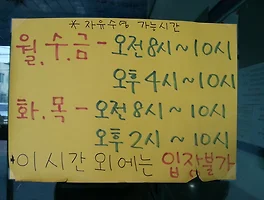 * 자유수영 가능시간
월.수.금 - 오전 8시 ~ 10시
오후 4시 ~ 10시
화.목 - 오전 8시 ~ 10시
오후 2시 ~ 10시
이 시간 외에는 입장불가